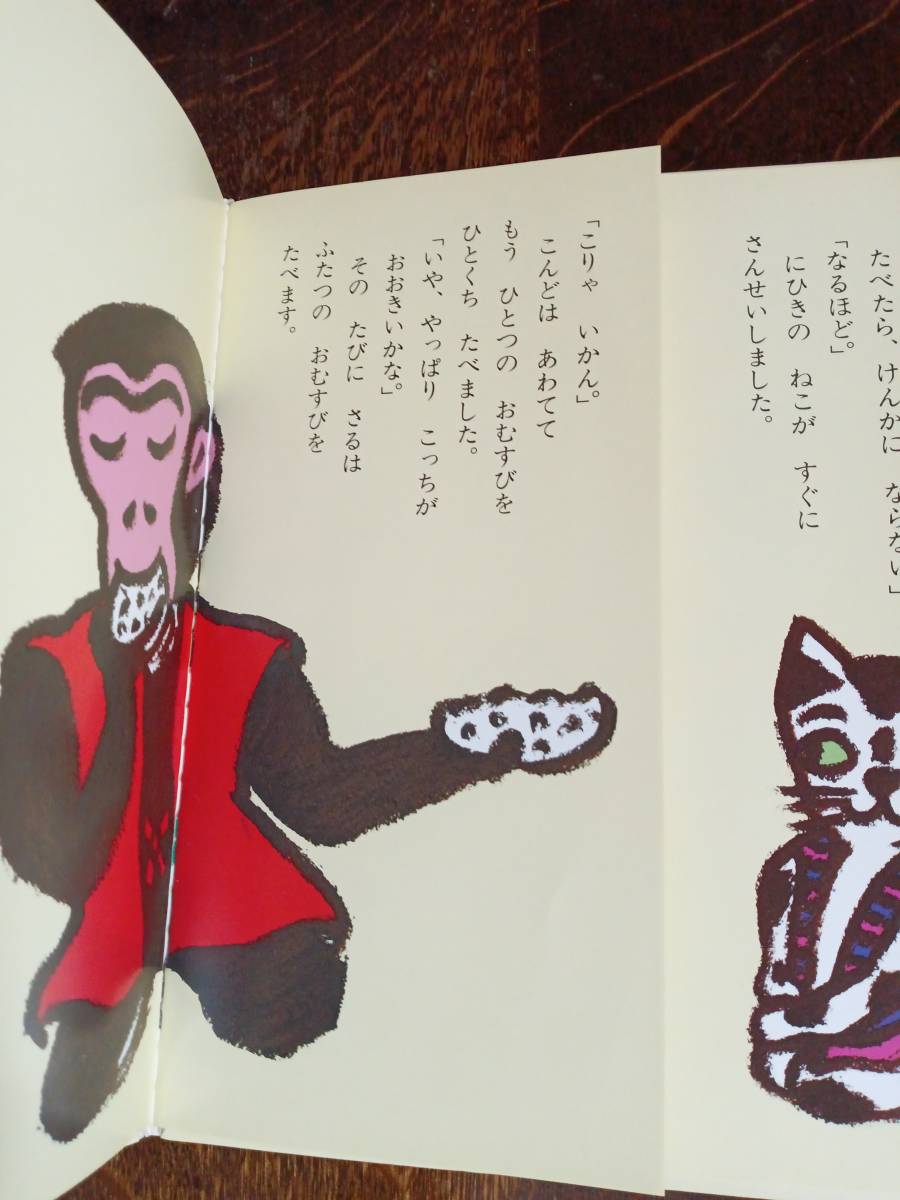 たべたら、けんかに ならない」
「なるほど。」
にひきの ねこが すぐに
さんせいしました。
「こりゃ いかん。」
こんどは あわてて
もう ひとつの おむすびを
ひとくち たべました。
「いや、やっぱり こっちが
おおきいかな。」
その たびに さるは
ふたつの おむすびを
たべます。